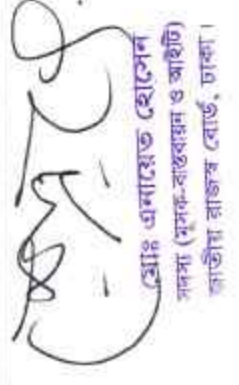 মোঃ এনায়েত হোসেন
সদস্য (মূসক-বাস্তবায়ন ও আইটি)
জাতীয় রাজস্ব বোর্ড, ঢাকা।